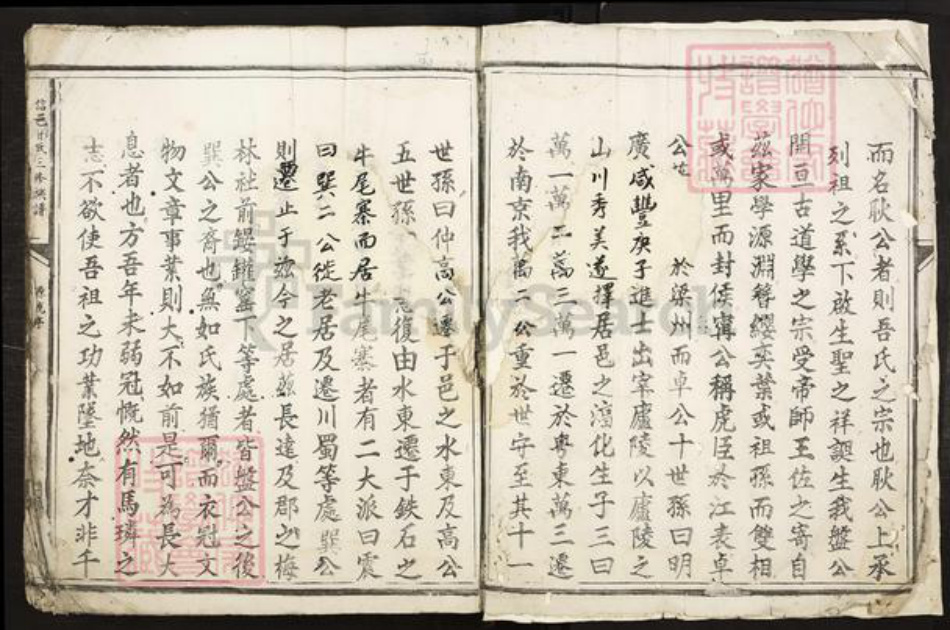 而名耿公者則吾氏之宗也耿公上承
列祖之系下啟生聖之祥謨生我盤公
開亘古道學之宗受帝師王佐之寄自
茲家學源淵簪纓奕葉或祖孫而雙相
或萬里而封侯寗公稱虎臣於江表卓
公 於梁州而卓公十世孫曰明
廣咸豐庚子進士出宰廬陵以廬陵之
山川秀美遂擇居邑之 化生子三曰
萬一萬二萬三萬一遷於粵東萬三遷
於南京我萬二公重於世守至其十一
世孫曰仲高公遷于邑之水東及高公
五世孫 復由水東遷于鉄石之
牛尾寨而居牛尾寨者有二大派曰震
曰巽二公從老居及遷川蜀等處巽公
則遷止于玆今之居玆長達及郡之梅
林社前 罐窰下等處者皆盤公之後
巽公之裔也無如氏族猶爾而衣冠文
物文章事業則大不如前是可為長大
息者也方吾年未弱冠慨然有馬璘之
志不欲使吾祖之功業墜地奈才非千
三修族譜
FamilySearch